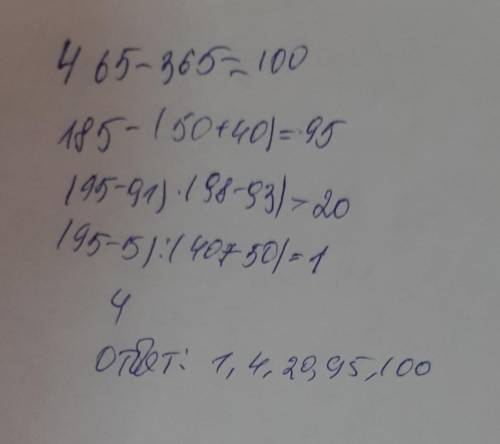 465-365=100
185-(50+40)=95
(95-91)·(98-93)=20
(95-5):(40+50)=1
4
Ответ: 1, 4, 20, 95, 100